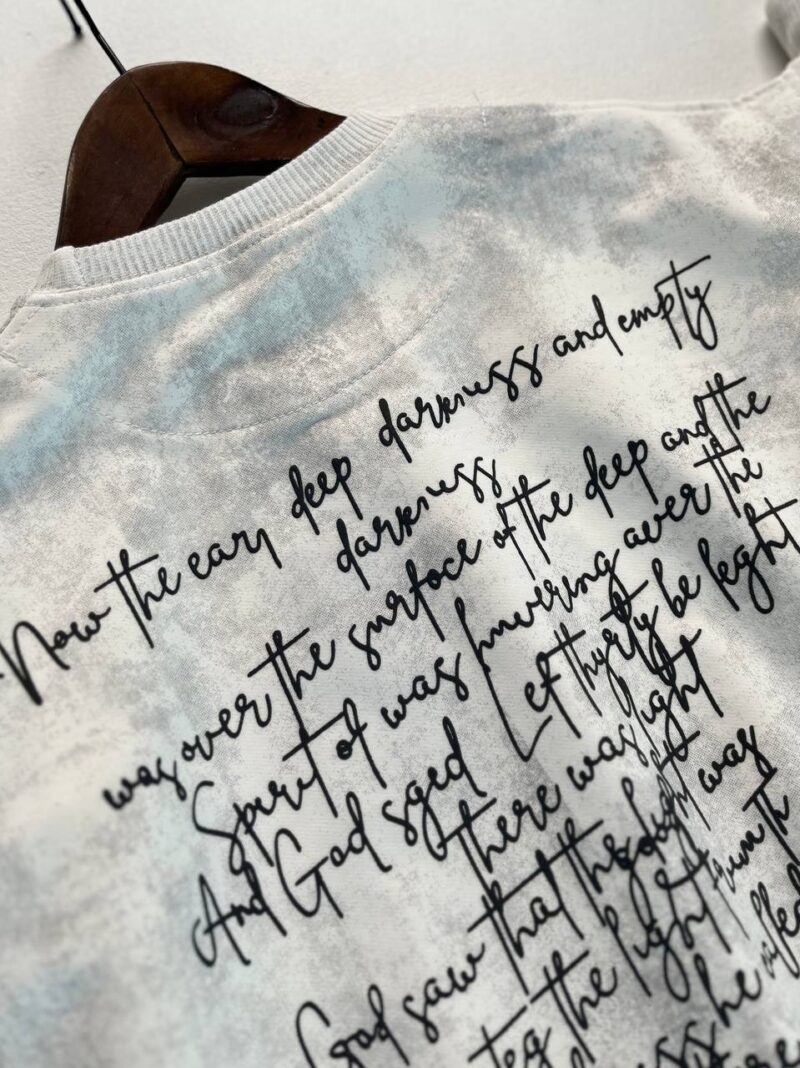 Now the eary deep darkness and empty
darkness
was over the surface of the deep and the
Spirit of was hovering over the
And God sged Let thyrty be leght
there was light
God saw that the light was
teg the light from th
ness he called